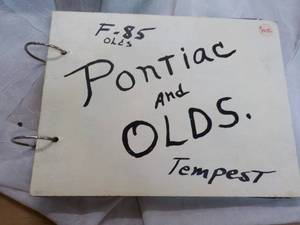 F-85
OLDS
PONTIAC
AND
OLDS.
TEMPEST